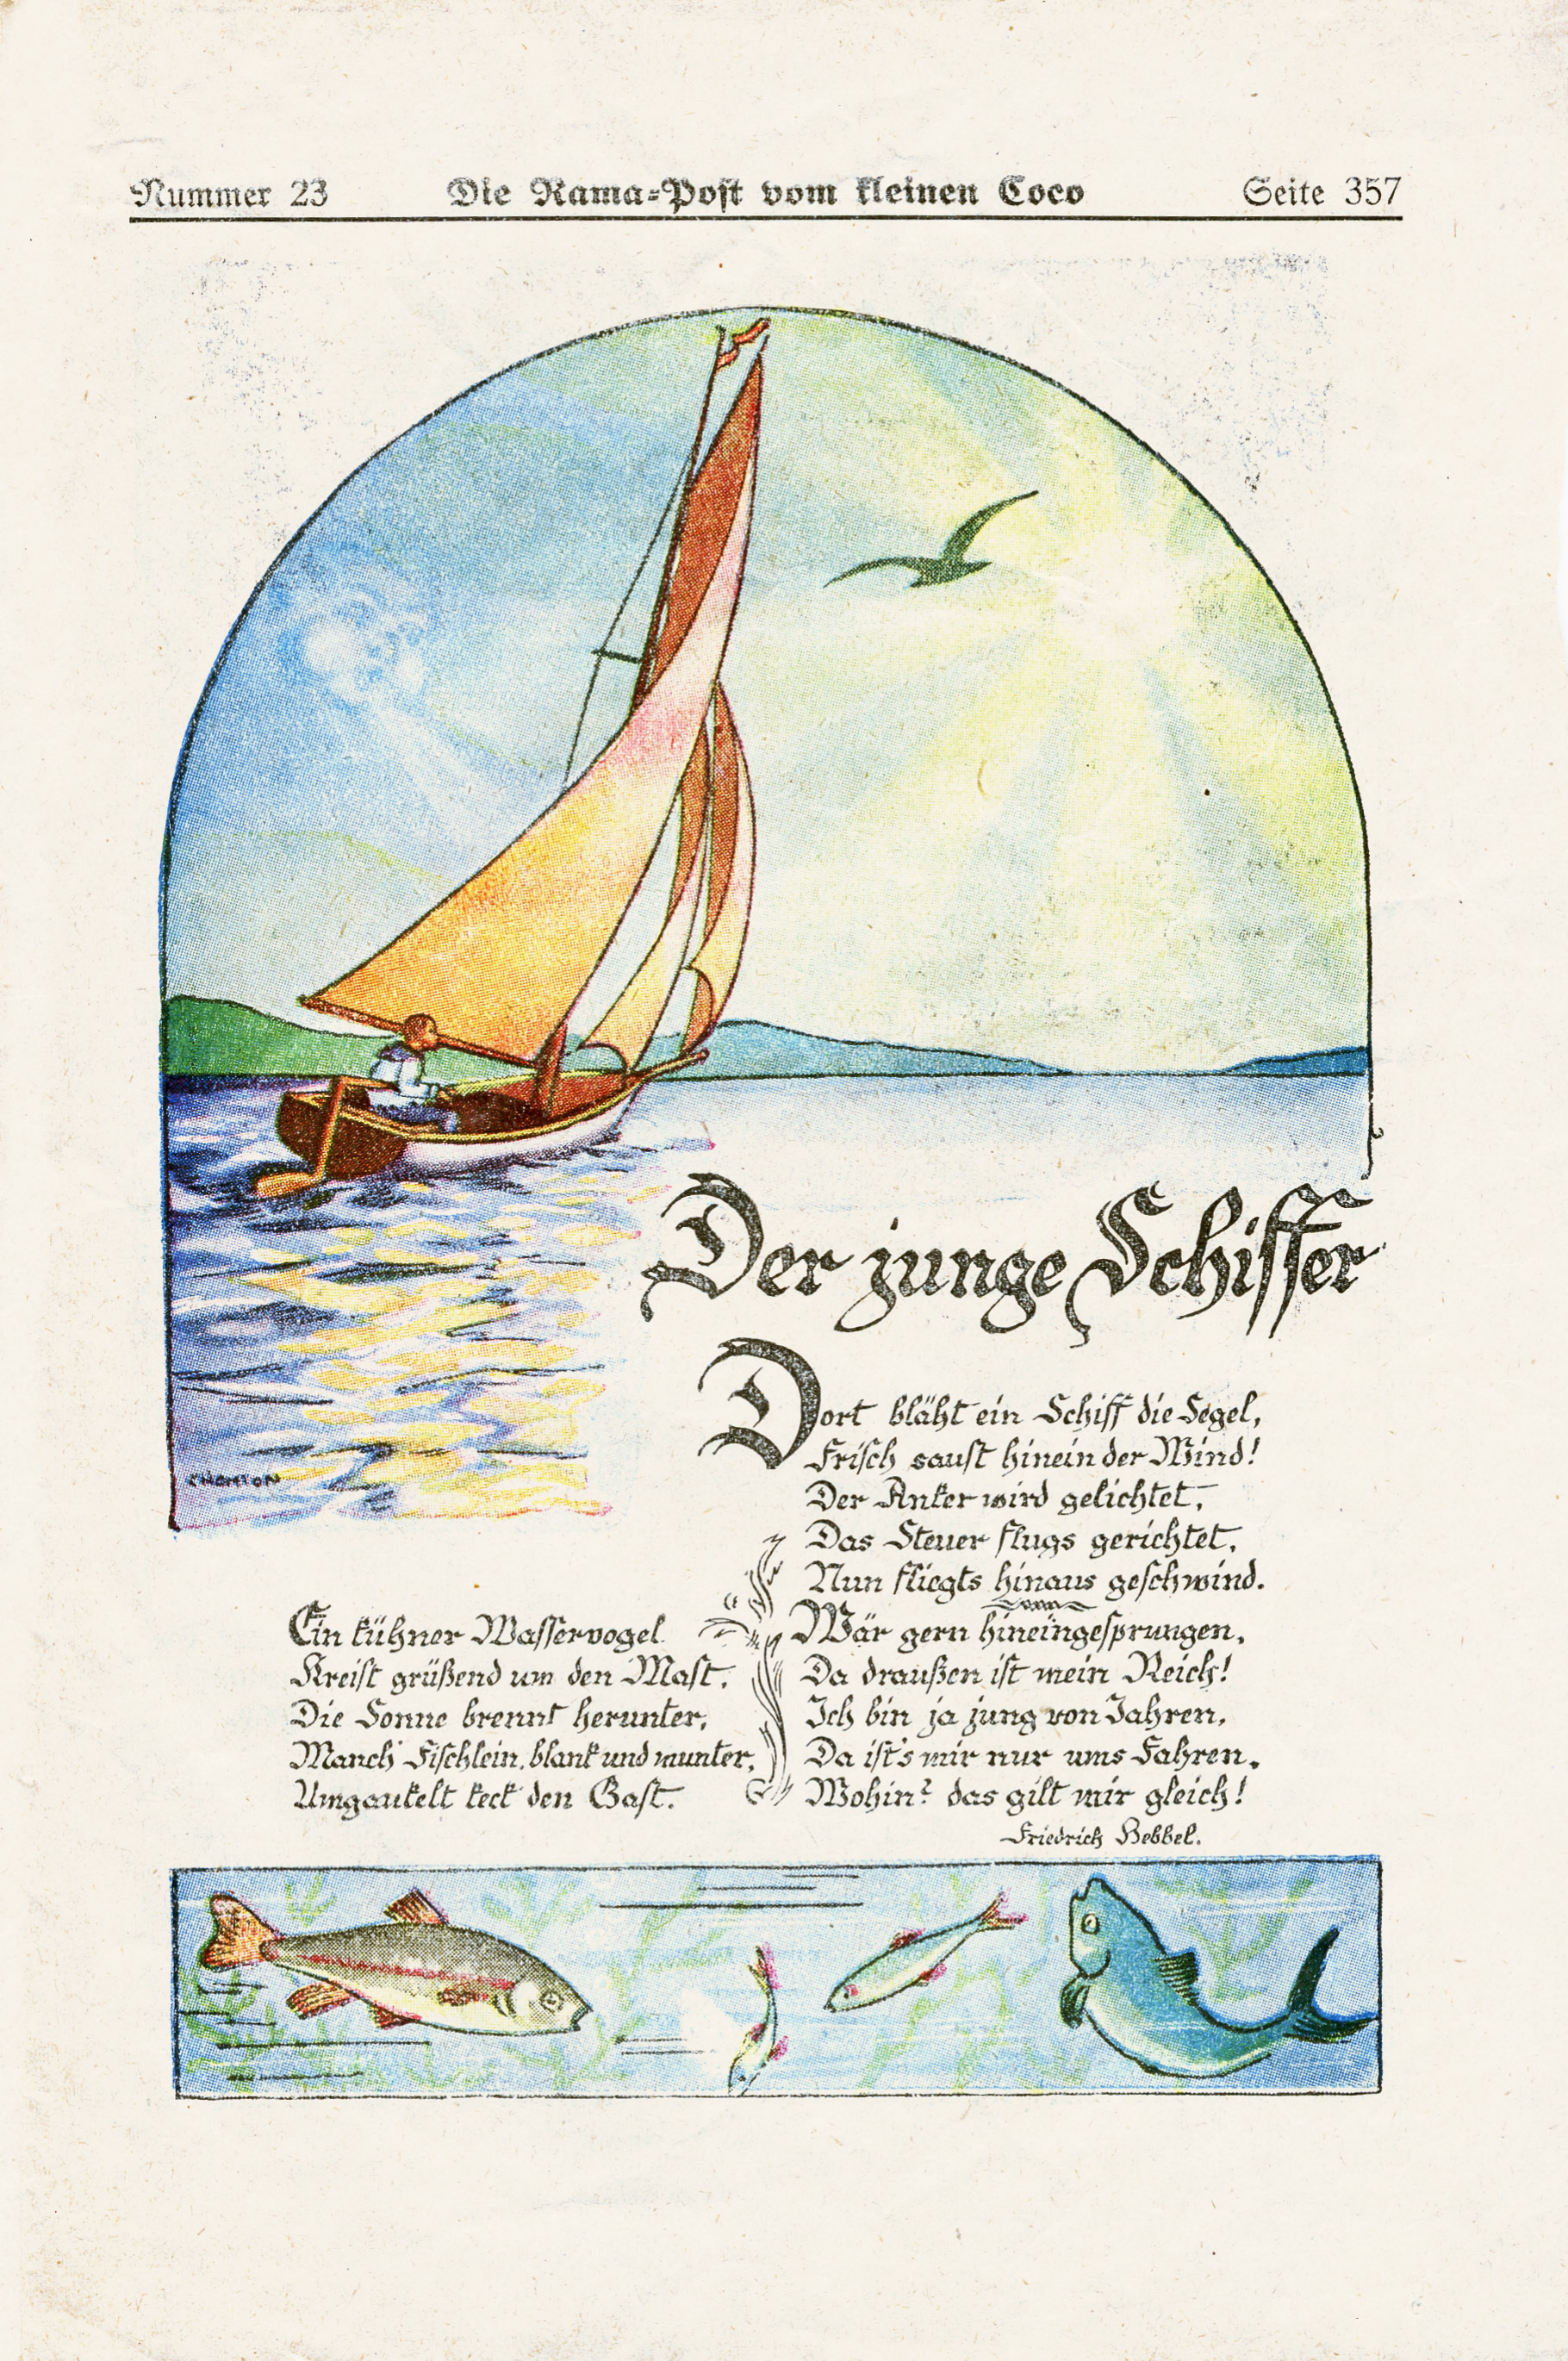 Nummer 23 Die Rama-Post vom kleinen Coco Seite 357
Der junge Schiffer
Dort bläht ein Schiff die Segel,
Frisch saust hinein der Wind!
Der Anker wird gelichtet,
Das Steuer flugs gerichtet,
Nun fliegts hinaus geschwind.
Ein kühner Wasservogel
Kreist grüßend um den Mast,
Die Sonne brennt herunter,
Manch' Fischlein, blank und munter,
Umgaukelt keck den Gast.
Wär gern hineingesprungen,
Da draußen ist mein Reich!
Ich bin ja jung von Jahren,
Da ist's mir nur ums Fahren,
Wohin? das gilt mir gleich!
Friedrich Hebbel.